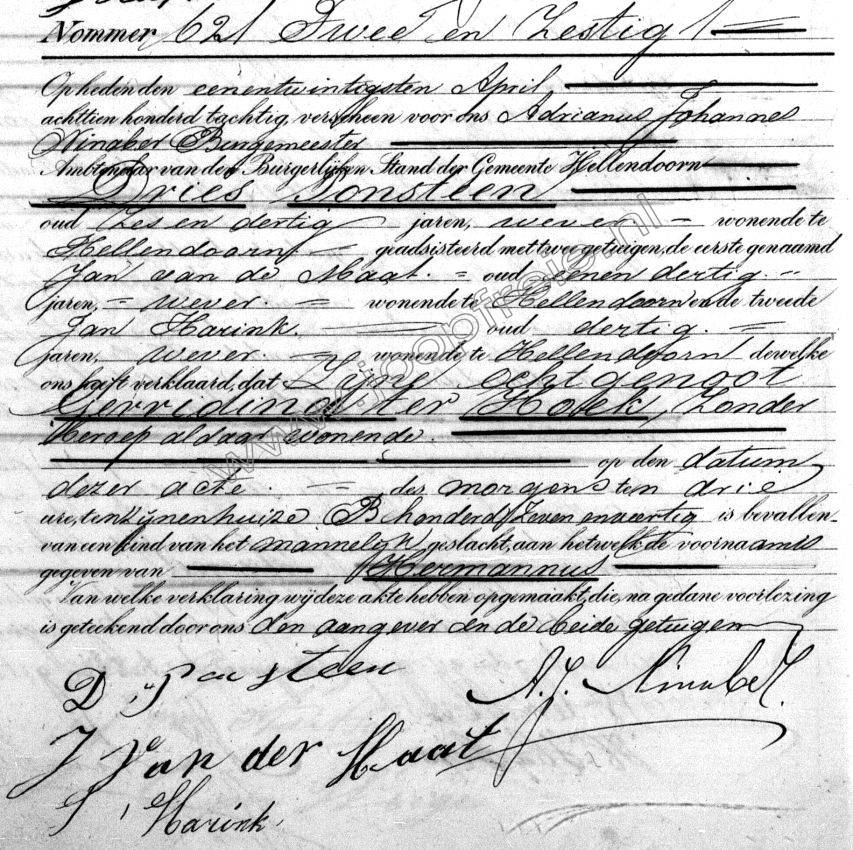 Nommer 62 Twee en Zestig
Op heden den eenentwintigsten April
achttien honderd tachtig, verscheen voor ons Adrianus Johannes
Ninaber Burgemeester
Ambtenaar van den Burgerlijken Stand der Gemeente Hellendoorn
Dries Ponsteen
oud Zes en dertig jaren, wever = wonende te
Hellendoorn geadsisteerd met twee getuigen, de eerste genaamd
Jan van de Maat. = oud eenen dertig. =
jaren, = wever. = wonende te Hellendoorn en de tweede
Jan Harink. = oud dertig. =
jaren, wever. = wonende te Hellendoorn dewelke
ons heeft verklaard, dat Zijne echtgenoot
Gerridina ter Hoek, Zonder
Beroep aldaar wonende.
op den datum
dezer acte. = des morgens ten drie
ure, ten zijnen huize B honderd Zeven en veertig is bevallen
van een kind van het mannelijk geslacht, aan hetwelk de voornaam is
gegeven van Hermannus
Van welke verklaring wij deze akte hebben opgemaakt, die, na gedane voorlezing
is geteekend door ons den aangever en de beide getuigen
D Ponsteen A. J. Ninaber.
J van der Maat
J Harink
www.joopfreie.nl